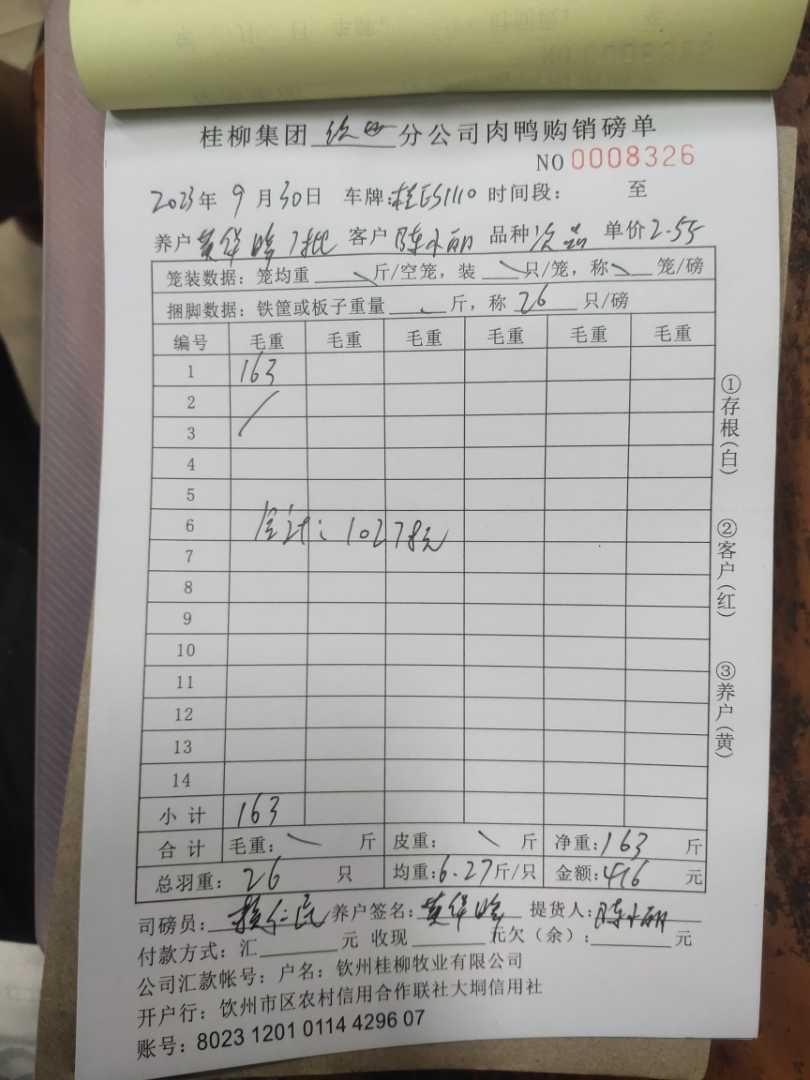 桂柳集团 钦州 分公司肉鸭购销磅单
NO 0008326
2023年 9月30日 车牌:桂ES1110 时间段: 至
养户 黄华 7批 客户 陈小丽 品种 次品 单价 2.55
笼装数据:笼均重 斤/空笼,装 只/笼,称 笼/磅
捆脚数据:铁筐或板子重量 斤,称 26 只/磅
编号 毛重 毛重 毛重 毛重 毛重 毛重
1 163
2
3
4
5
6 合计:10278元
7
8
9
10
11
12
13
14
小计 163
合计 毛重: 斤 皮重: 斤 净重:163 斤
总羽重: 26 只 均重:6.27斤/只 金额:416 元
司磅员: 养户签名:黄华 提货人:陈小丽
付款方式:汇 元 收现 元欠(余): 元
公司汇款帐号:户名:钦州桂柳牧业有限公司
开户行:饮州市区农村信用合作联社大垌信用社
账号:8023 1201 0114 4296 07
①存根(白)
②客户(红)
③养户(黄)